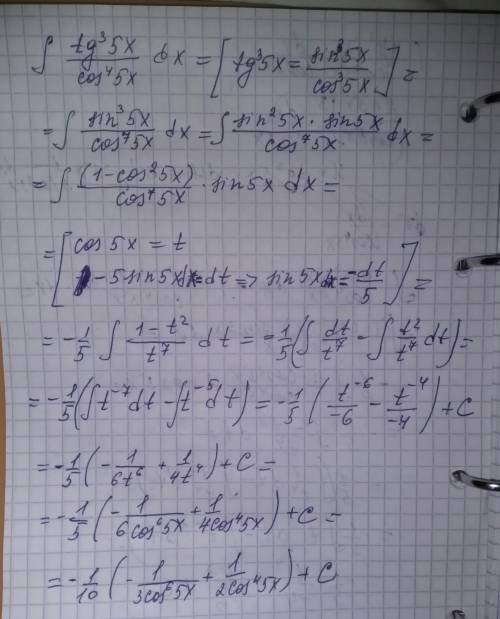 ∫ tg³5x/cos⁴5x dx = [tg³5x = sin³5x/cos³5x] =
= ∫ sin³5x/cos⁷5x dx = ∫ sin²5x · sin5x/cos⁷5x dx =
= ∫ (1-cos²5x)/cos⁷5x · sin5x dx =
= [cos5x = t
-5sin5xdx=dt => sin5xdx = -dt/5] =
= -1/5 ∫ 1-t²/t⁷ dt = -1/5(∫ dt/t⁷ - ∫ t²/t⁷ dt) =
= -1/5(∫t⁻⁷dt - ∫t⁻⁵dt) = -1/5(t⁻⁶/-6 - t⁻⁴/-4) + C
= -1/5(-1/6t⁶ + 1/4t⁴) + C =
= -1/5(-1/6cos⁶5x + 1/4cos⁴5x) + C =
= -1/10(-1/3cos⁶5x + 1/2cos⁴5x) + C